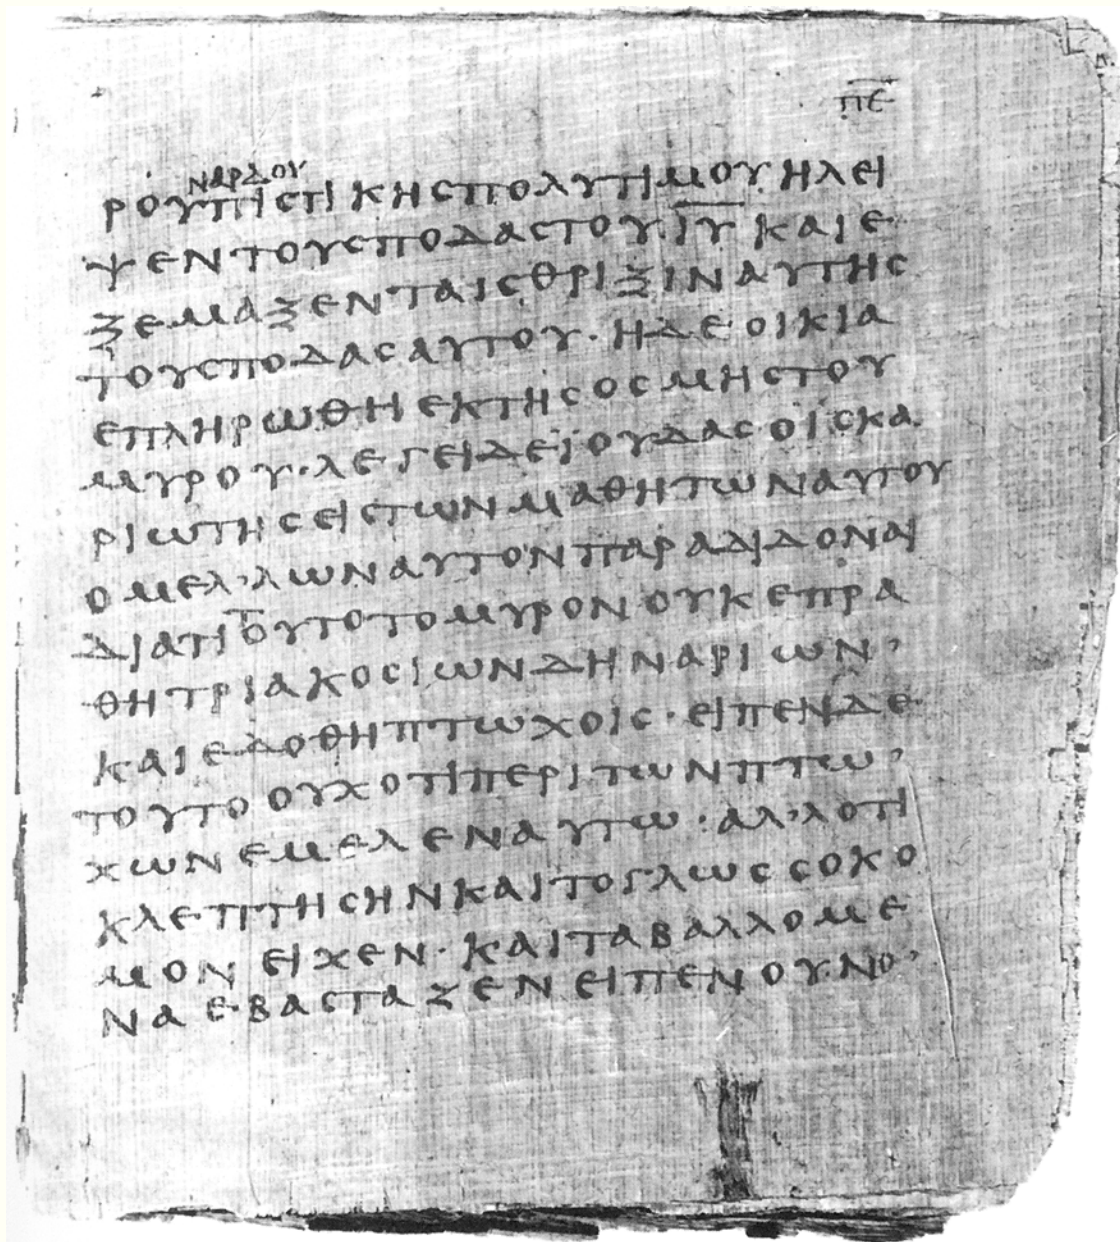 ΠΕ
ΝΑΡΔΟΥ
ΡΟΥΠΙϹΤΙΚΗϹΠΟΛΥΤΙΜΟΥ·ΗΛΕΙ
ΨΕΝΤΟΥϹΠΟΔΑϹΤΟΥ·Ι̅Υ̅ΚΑΙΕ
ΞΕΜΑΞΕΝΤΑΙϹΘΡΙΞΙΝΑΥΤΗϹ
ΤΟΥϹΠΟΔΑϹΑΥΤΟΥ·ΗΔΕΟΙΚΙΑ
ΕΠΛΗΡΩΘΗΕΚΤΗϹΟϹΜΗϹΤΟΥ
ΜΥΡΟΥ·ΛΕΓΕΙΔΕΪΟΥΔΑϹΟΪϹΚΑ
ΡΙΩΤΗϹΕΙϹΤΩΝΜΑΘΗΤΩΝΑΥΤΟΥ
ΟΜΕΛ᾿ΛΩΝΑΥΤΟΝΠΑΡΑΔΙΔΟΝΑΙ
ΔΙΑΤΙΤΟΥΤΟΤΟΜΥΡΟΝΟΥΚΕΠΡΑ
ΘΗΤΡΙΑΚΟϹΙΩΝΔΗΝΑΡΙΩΝ᾿
ΚΑΙΕΔΟΘΗΠΤΩΧΟΙϹ·ΕΙΠΕΝΔΕ
ΤΟΥΤΟΟΥΧΟΤΙΠΕΡΙΤΩΝΠΤΩ᾿
ΧΩΝΕΜΕΛΕΝΑΥΤΩ·ΑΛ᾿ΛΟΤΙ
ΚΛΕΠΤΗϹΗΝΚΑΙΤΟΓΛΩϹϹΟΚΟ
ΜΟΝΕΙΧΕΝ·ΚΑΙΤΑΒΑΛΛΟΜΕ
ΝΑΕΒΑϹΤΑΖΕΝΕΙΠΕΝΟΥΝΟ᾿